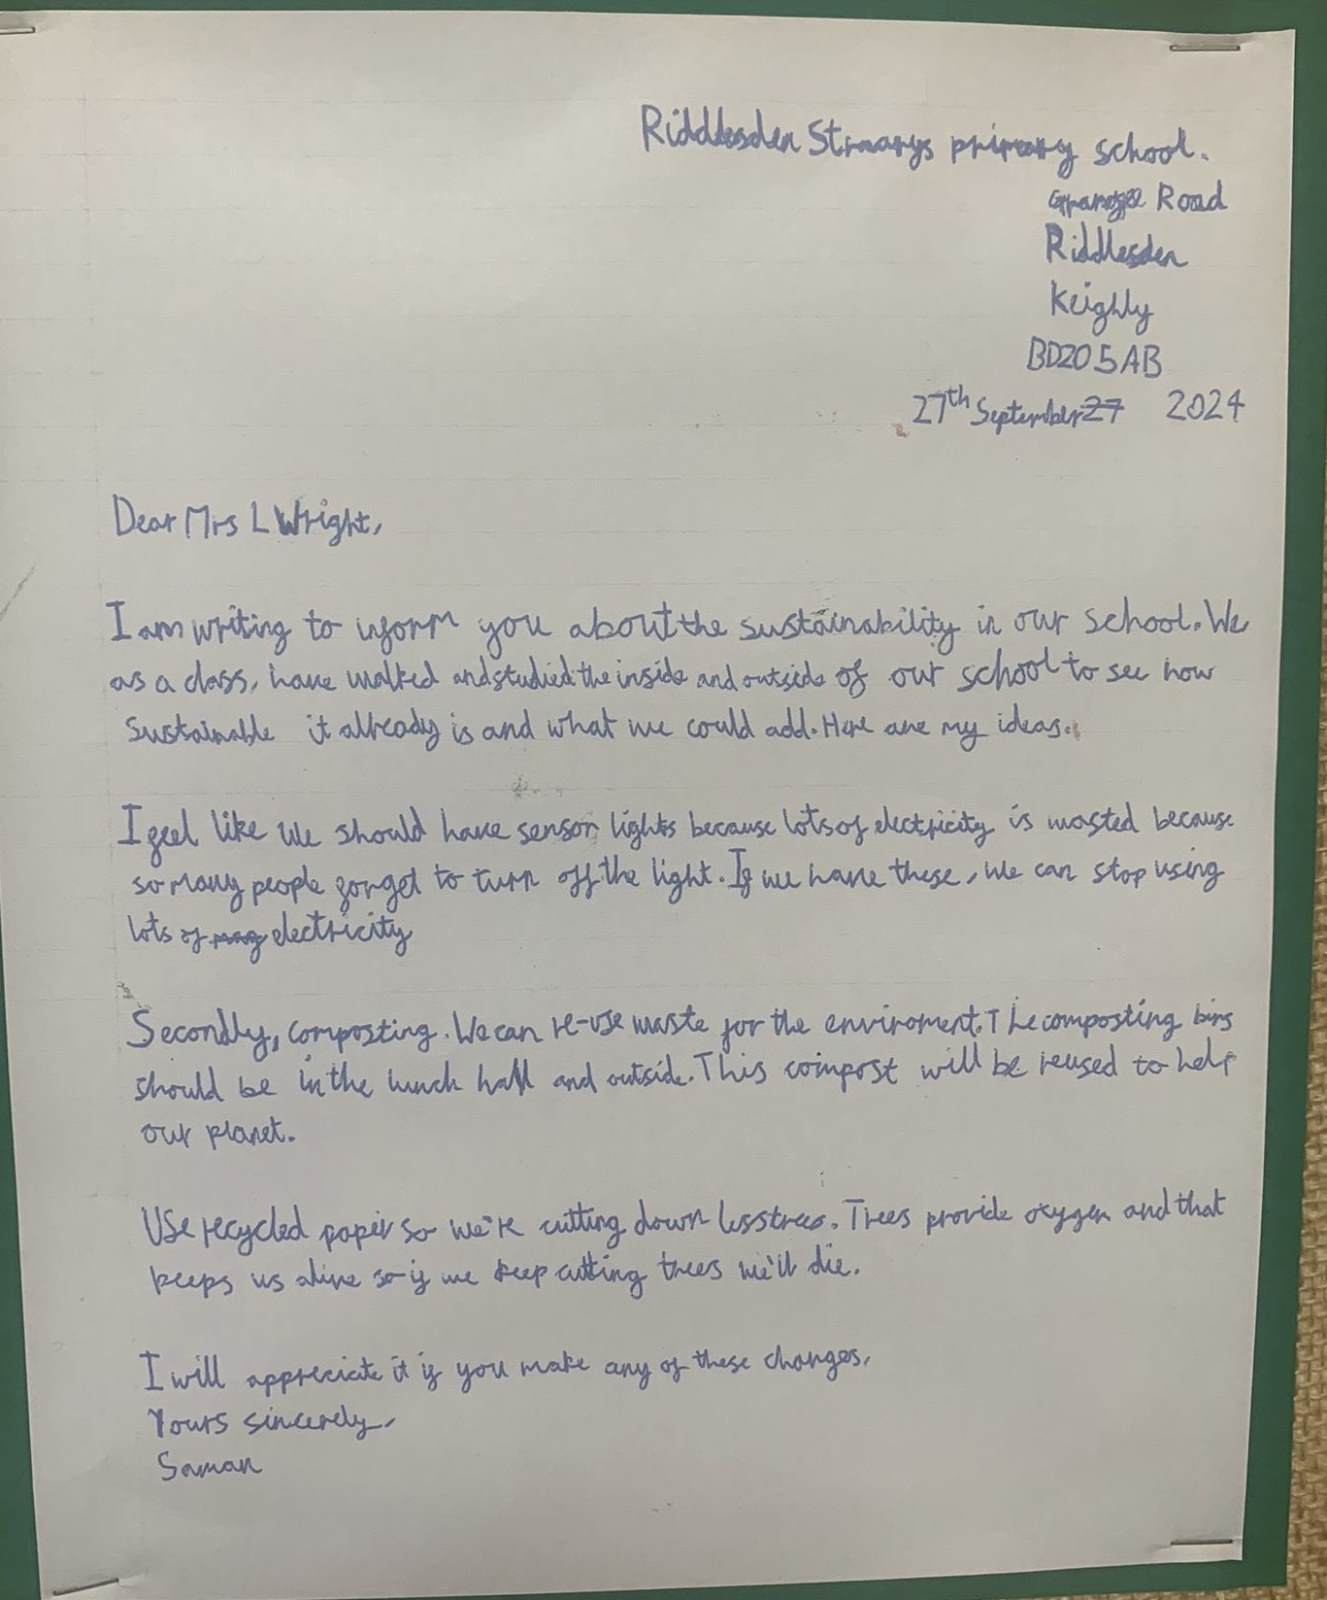 Riddlesden St marys primary school.
Grange Road
Riddlesden
Keighly
BD20 5AB
27th September 27 2024
Dear Mrs L Wright,
I am writing to inform you about the sustainability in our school. We
as a class, have walked and studied the inside and outside of our school to see how
sustainable it already is and what we could add. Here are my ideas.
I feel like we should have sensor lights because lots of electricity is wasted because
so many people forget to turn off the light. If we have these, we can stop using
lots of electricity
Secondly, composting. We can re-use waste for the enviroment. The composting bins
should be in the lunch hall and outside. This compost will be reused to help
our planet.
Use recycled paper so we're cutting down less trees. Trees provide oxygen and that
keeps us alive so if we keep cutting trees we'll die.
I will appreciate it if you make any of these changes,
Yours sincerely,
Saman